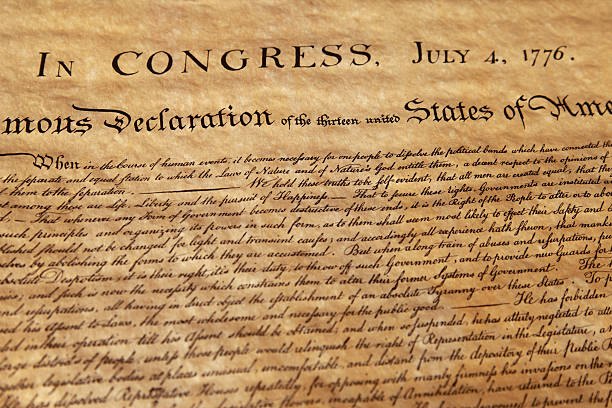 In CONGRESS, July 4, 1776.
mous Declaration of the thirteen united States of Ame
When in the Course of human events, it becomes necessary for one people to dissolve the political bands which have connected
the separate and equal station to which the Laws of Nature and of Nature's God entitle them, a decent respect to the opinions of
l them to the separation. We hold these truths to be self-evident, that all men are created equal, that
among these are Life, Liberty and the pursuit of Happiness. — That to secure these rights, Governments are instituted
— That whenever any Form of Government becomes destructive of these ends, it is the Right of the People to alter or to abo
such principles and organizing its powers in such form, as to them shall seem most likely to effect their Safety and
blished should not be changed for light and transient causes; and accordingly all experience hath shewn, that mank
selves by abolishing the forms to which they are accustomed. But when a long train of abuses and usurpations,
absolute Despotism, it is their right, it is their duty, to throw off such Government, and to provide new Guards for
ies; and such is now the necessity which constrains them to alter their former Systems of Government. The
and usurpations, all having in direct object the establishment of an absolute Tyranny over these States. To
sed his Assent to Laws, the most wholesome and necessary for the public good. He has forbidden
ed in their operation till his Assent should be obtained; and when so suspended, he has utterly neglected to
large districts of people, unless those people would relinquish the right of Representation in the Legislature, a
together legislative bodies at places unusual, uncomfortable, and distant from the depository of their Public
has dissolved Representative Houses repeatedly, for opposing with manly firmness his invasions on the
Powers, incapable of Annihilation, have returned to the
to prevent the